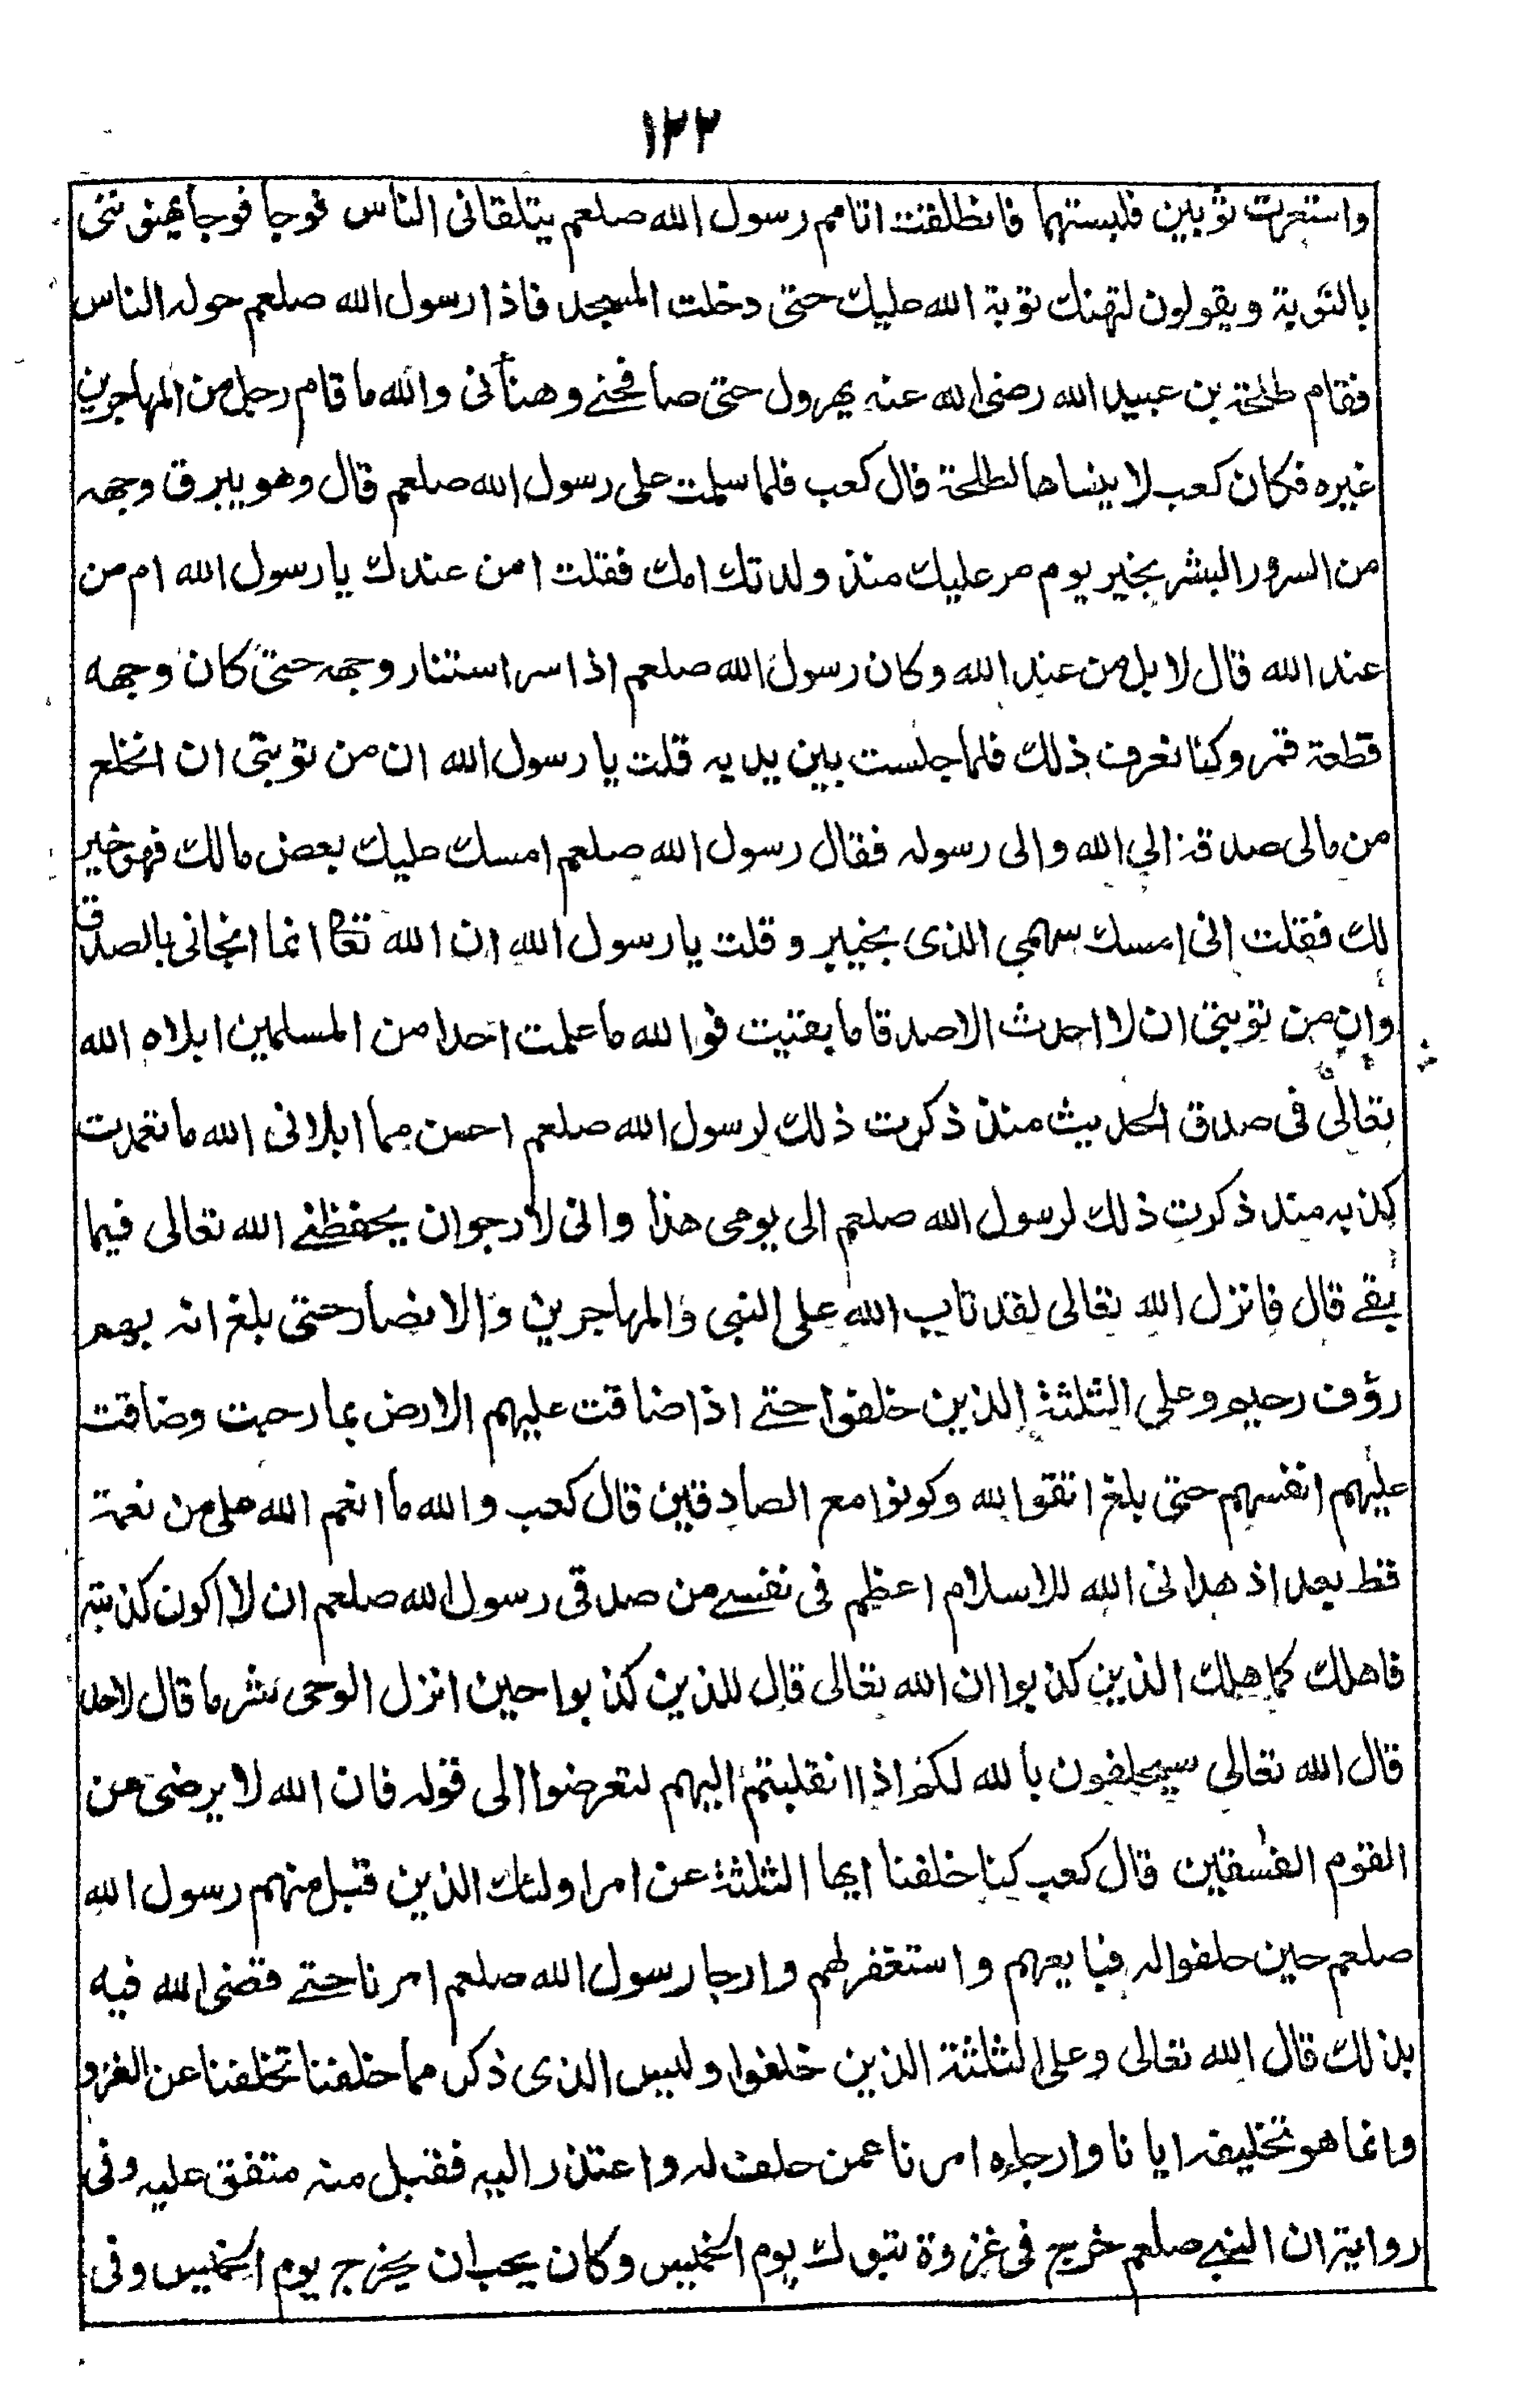 ١٢٢
واستعرت ثوبين فلبستهما فانطلقت اتامم رسول الله صلعم يتلقانى الناس فوجا فوجا يهنونني
بالتوبة ويقولون لتهنك توبة الله عليك حتى دخلت المسجد فاذا رسول الله صلعم حوله الناس
فقام طلحة بن عبيد الله رضى الله عنه يهرول حتى صافحنے وهنأنى والله ما قام رجل من المهاجرين
غيره فكان كعب لا ينساها لطلحة قال كعب فلما سلمت على رسول الله صلعم قال وهو يبرق وجهه
من السرور البشر بخير يوم مر عليك منذ ولدتك امك فقلت امن عندك يا رسول الله ام من
عند الله قال لا بل من عند الله وكان رسول الله صلعم اذا سر استنار وجهه حتى كان وجهه
قطعة قمر وكنا نعرف ذلك فلما جلست بين يديه قلت يا رسول الله ان من توبتى ان انخلع
من مالى صدقة الى الله والى رسوله فقال رسول الله صلعم امسك عليك بعض مالك فهو خير
لك فقلت انى امسك سهمي الذى بخيبر وقلت يا رسول الله ان الله تعا انما انجانى بالصدق
وان من توبتى ان لا احدث الا صدقا ما بقيت فوالله ما علمت احدا من المسلمين ابلاه الله
تعالى فى صدق الحديث منذ ذكرت ذلك لرسول الله صلعم احسن مما ابلانى الله ما تعمدت
كذبه منذ ذكرت ذلك لرسول الله صلعم الى يومى هذا وانى لارجو ان يحفظنے الله تعالى فيما
بقے قال فانزل الله تعالى لقد تاب الله على النبى والمهاجرين والانصار حتى بلغ انه بهم
رؤف رحيم وعلى الثلثة الذين خلفوا حتے اذا ضاقت عليهم الارض بما رحبت وضاقت
عليهم انفسهم حتى بلغ اتقوا لله وكونوا مع الصادقين قال كعب والله ما انعم الله على من نعمة
قط بعد اذ هدانى الله للاسلام اعظم فى نفسے من صدقى رسول الله صلعم ان لا اكون كذبته
فاهلك كما هلك الذين كذبوا ان الله تعالى قال للذين كذبوا حين انزل الوحى بشر ما قال لاحد
قال الله تعالى سيحلفون بالله لكم اذا انقلبتم اليهم لتعرضوا الى قوله فان الله لا يرضى عن
القوم الفسقين قال كعب كنا خلفنا ايها الثلثة عن امر اولئك الذين قبل منهم رسول الله
صلعم حين حلفوا له فبايعهم واستغفر لهم وارجا رسول الله صلعم امرنا حتے قضى الله فيه
بذلك قال الله تعالى وعلى الثلثة الذين خلفوا وليس الذى ذكر مما خلفنا تخلفنا عن الغزو
وانما هو تخليفه ايانا وارجاءه امرنا عمن حلف له واعتذر اليه فقبل منه متفق عليه وفى
رواية ان النبے صلعم خرج فى غزوة تبوك يوم الخميس وكان يحب ان يخرج يوم الخميس وفى